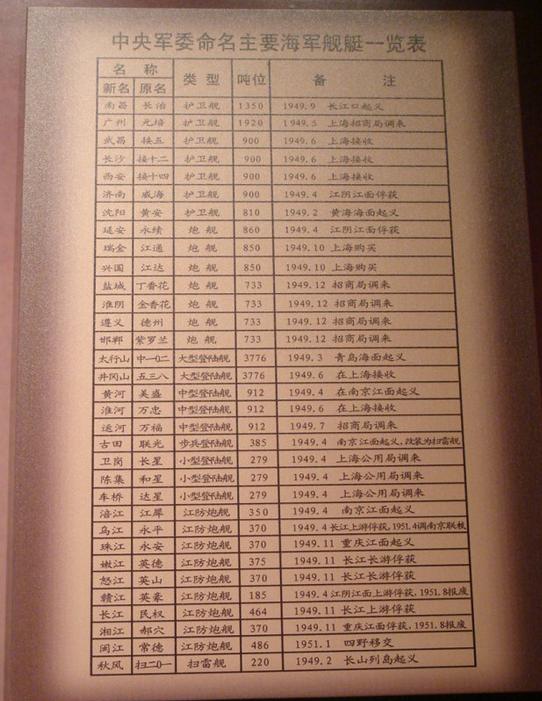 中央军委命名主要海军舰艇一览表
名 称 类 型 吨位 备 注
新名 原名
南昌 长治 护卫舰 1350 1949.9 长江口起义
广州 元培 护卫舰 1920 1949.5 上海招商局调来
武昌 接五 护卫舰 900 1949.6 上海接收
长沙 接十二 护卫舰 900 1949.6 上海接收
西安 接十四 护卫舰 900 1949.6 上海接收
济南 威海 护卫舰 900 1949.4 江阴江面俘获
沈阳 黄安 护卫舰 810 1949.2 黄海海面起义
延安 永绩 炮 舰 860 1949.4 江阴江面俘获
瑞金 江通 炮 舰 850 1949.10 上海购买
兴国 江达 炮 舰 850 1949.10 上海购买
盐城 丁香花 炮 舰 733 1949.12 招商局调来
淮阴 金香花 炮 舰 733 1949.12 招商局调来
遵义 德州 炮 舰 733 1949.12 招商局调来
邯郸 紫罗兰 炮 舰 733 1949.12 招商局调来
太行山 中一0二 大型登陆舰 3776 1949.3 青岛海面起义
井冈山 五三八 大型登陆舰 3776 1949.6 在上海接收
黄河 美盛 中型登陆舰 912 1949.4 在南京江面起义
淮河 万忠 中型登陆舰 912 1949.6 在上海接收
运河 万福 中型登陆舰 912 1949.7 招商局调来
古田 联光 步兵登陆舰 385 1949.4 南京江面起义,改装为扫雷舰
卫岗 长星 小型登陆舰 279 1949.4 上海公用局调来
陈集 和星 小型登陆舰 279 1949.4 上海公用局调来
车桥 达星 小型登陆舰 279 1949.4 上海公用局调来
涪江 江犀 江防炮舰 350 1949.4 南京江面起义
乌江 永平 江防炮舰 370 1949.4 长江上游俘获,1951.4调南京联校
珠江 永安 江防炮舰 370 1949.11 重庆江面起义
嫩江 英德 江防炮舰 375 1949.11 长江长游俘获
怒江 英山 江防炮舰 370 1949.11 长江长游俘获
赣江 英豪 江防炮舰 185 1949.4 江阴江面上游俘获,1951.8报废
长江 民权 江防炮舰 464 1949.11 长江上游俘获
湘江 郝穴 江防炮舰 370 1949.11 重庆江面俘获,1951.8报废
闽江 常德 江防炮舰 486 1951.1 四野移交
秋风 扫二0一 扫雷舰 220 1949.2 长山列岛起义